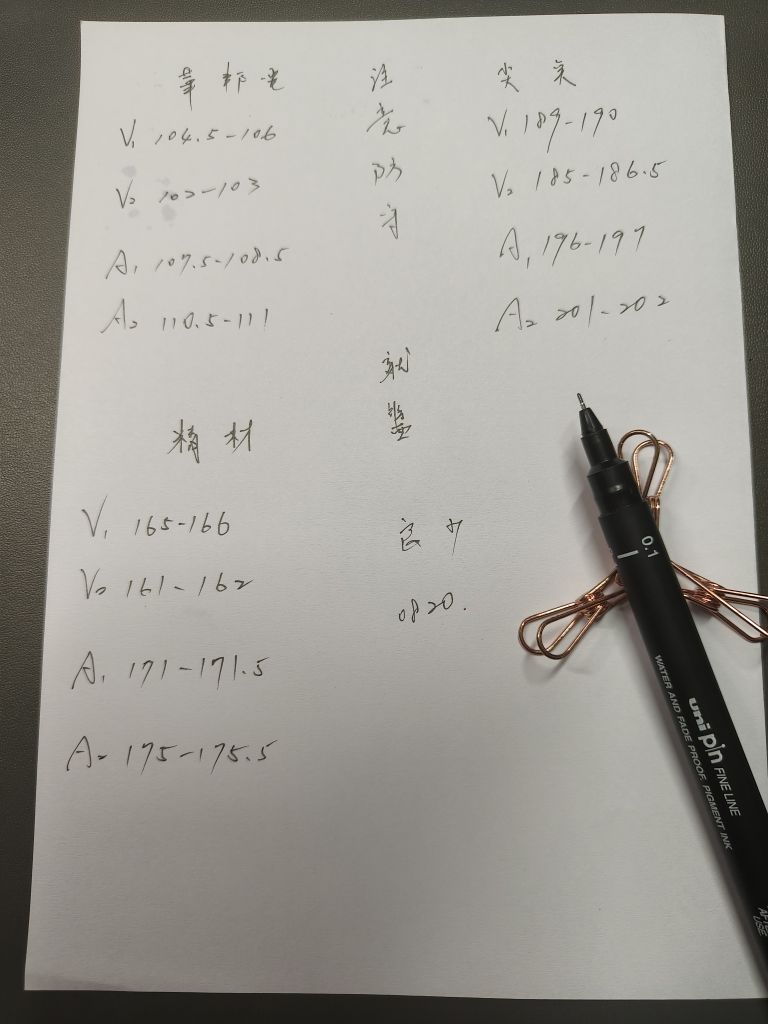 華邦電
V₁ 104.5-106
V₂ 102-103
A₁ 107.5-108.5
A₂ 110.5-111
注
意
防
守
V₁ 189-190
V₂ 185-186.5
A₁ 196-197
A₂ 201-202
精材
V₁ 165-166
V₂ 161-162
A₁ 171-171.5
A₂ 175-175.5
0820.
0.1
uni pin FINE LINE
WATER AND FADE PROOF, PIGMENT INK